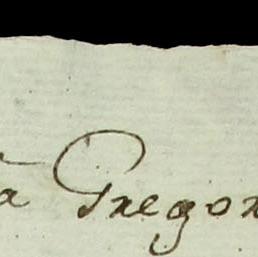 a Gregor